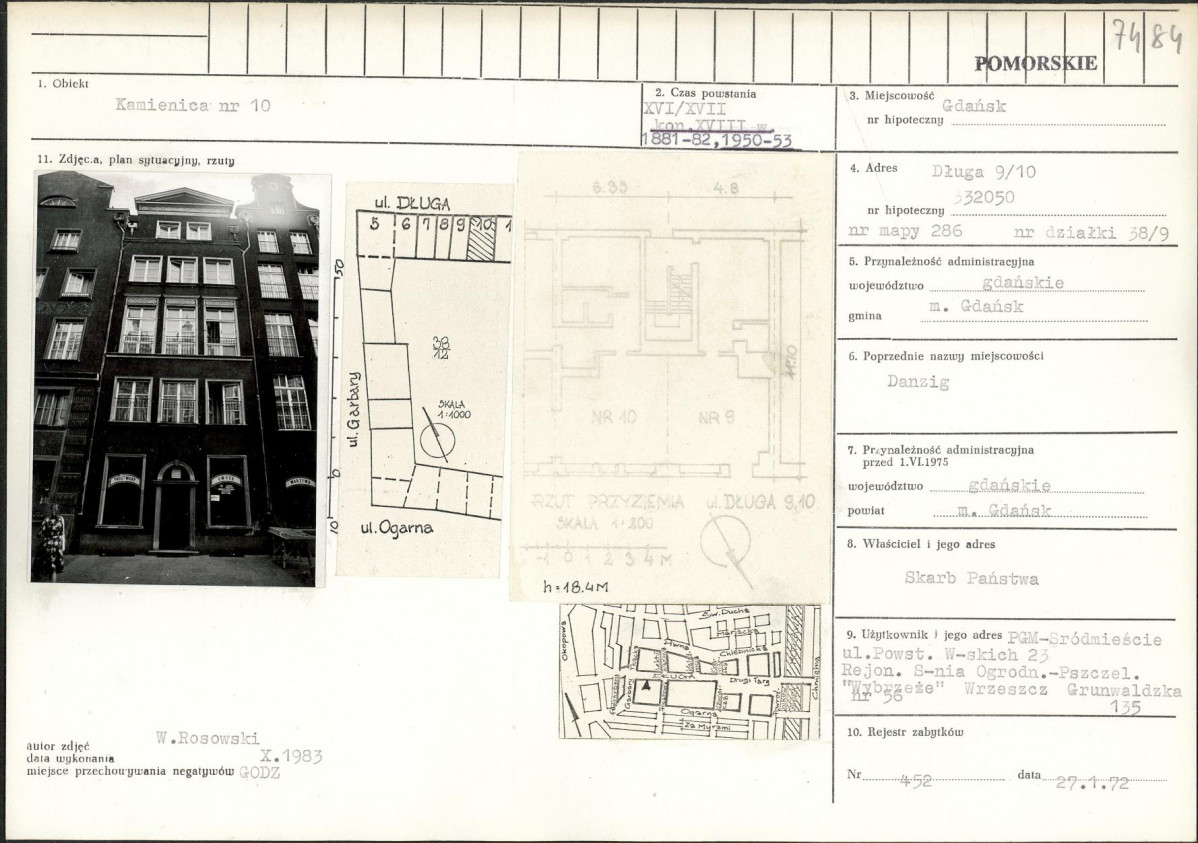 7484
POMORSKIE
1. Obiekt
Kamienica nr 10
2. Czas powstania
XVI/XVII
kon.XVIII w.
1881-82,1950-53
3. Miejscowość Gdańsk
nr hipoteczny
11. Zdjęc.a, plan sytuacyjny, rzuty
4. Adres Długa 9/10
332050
nr hipoteczny
nr mapy 286 nr działki 38/9
5. Przynależność administracyjna
województwo gdańskie
gmina m. Gdańsk
6. Poprzednie nazwy miejscowości
Danzig
7. Przynależność administracyjna
przed 1.VI.1975
województwo gdańskie
powiat m. Gdańsk
8. Właściciel i jego adres
Skarb Państwa
9. Użytkownik i jego adres PGM-Sródmieście
ul.Powst. W-skich 23
Rejon. S-nia Ogrodn.-Pszczel.
"Wybrzeże" Wrzeszcz Grunwaldzka
nr 56
135
10. Rejestr zabytków
Nr 452 data 27.1.72
ul. DŁUGA
5 6 7 8 9 10 1
50
38
12
SKALA
1:1000
ul. Garbary
0
10
ul. Ogarna
6.35 4.8
11.10
NR 10 NR 9
RZUT PRZYZIEMIA ul. DŁUGA 9,10
SKALA 1:200
-1 0 1 2 3 4 M
h=18.4M
Okopowa
Św. Ducha
Mariacka
Chlebnicka
Długi Targ
DŁUGA
Garbary
Ogarna
Za Murami
Chmielna
autor zdjęć W.Rosowski
data wykonania X.1983
miejsce przechowywania negatywów GODZ